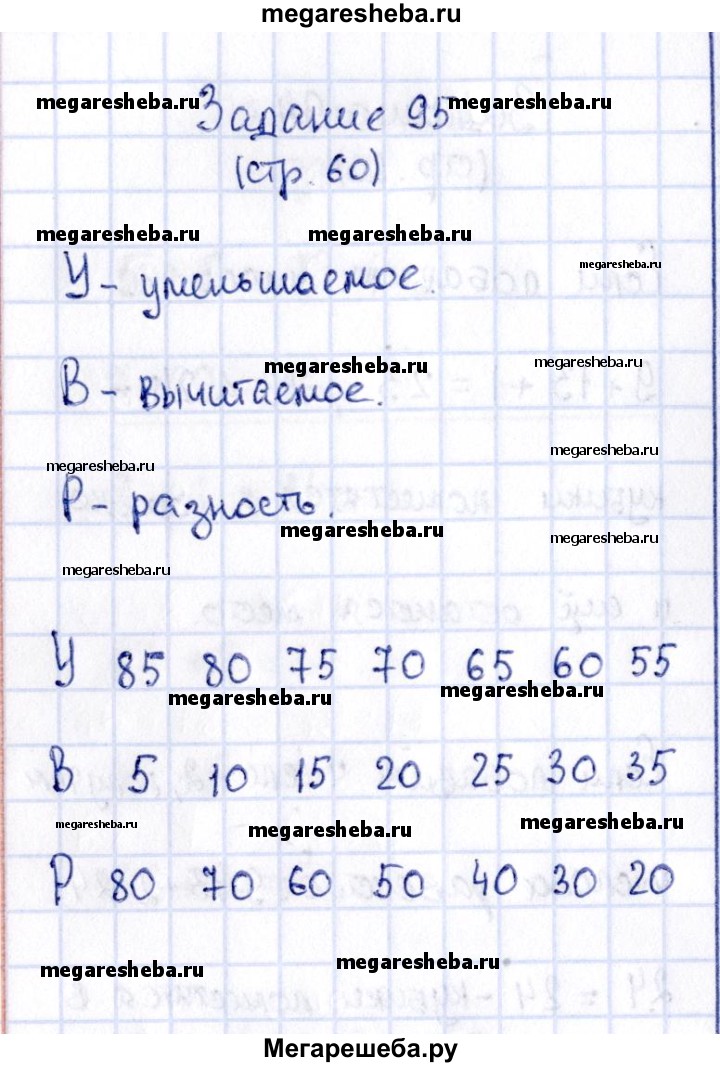 megaresheba.ru
megaresheba.ru Задание 95 megaresheba.ru
(стр. 60)
megaresheba.ru megaresheba.ru
megaresheba.ru
У - уменьшаемое.
megaresheba.ru megaresheba.ru
В - вычитаемое.
megaresheba.ru
Р - разность.
megaresheba.ru
megaresheba.ru
megaresheba.ru
У 85 80 75 70 65 60 55
megaresheba.ru megaresheba.ru
В 5 10 15 20 25 30 35
megaresheba.ru megaresheba.ru megaresheba.ru
Р 80 70 60 50 40 30 20
megaresheba.ru megaresheba.ru
Мегарешеба.ру